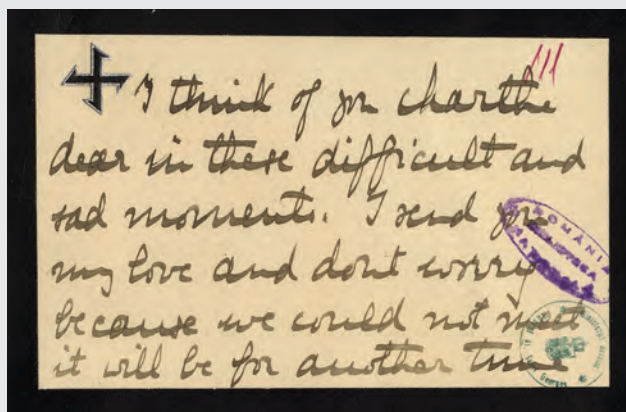 I think of you Marthe
dear in these difficult and
sad moments. I send you
my love and dont worry
because we could not meet
it will be for another time
111
ROMÂNIA
BIBLIOTECA